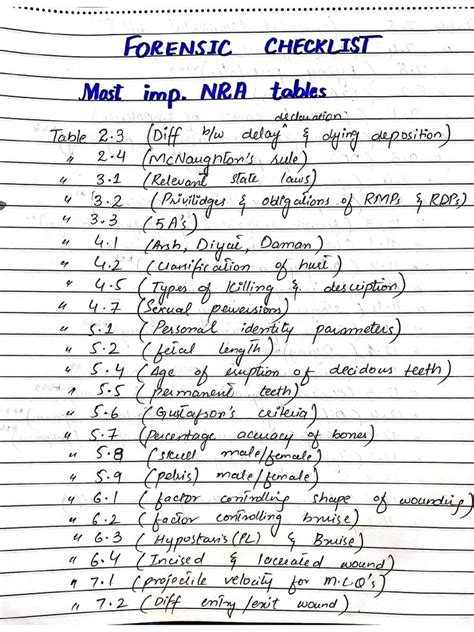 FORENSIC CHECKLIST
Most imp. NRA tables
declaration
Table 2.3 (Diff b/w delay ^ & dying deposition)
" 2.4 (McNaughton's rule)
" 3.1 (Relevant state laws)
" 3.2 (Privilidges & obligations of RMPs & RDPs)
" 3.3 (5A's)
" 4.1 (Arsh, Diyat, Daman)
" 4.2 (Classification of hurt)
" 4.5 (Types of killing & description)
" 4.7 (Sexual perversions)
" 5.1 (Personal identity parameters)
" 5.2 (fetal length)
" 5.4 (Age of eruption of decidous teeth)
" 5.5 (permanent teeth)
" 5.6 (Gustafson's criteria)
" 5.7 (percentage accuracy of bones)
" 5.8 (skull male/female)
" 5.9 (pelvis) male/female)
" 6.1 (factor controlling shape of wounding)
" 6.2 (factor controlling bruise)
" 6.3 (Hypostasis (PL) & Bruise)
" 6.4 (Incised & lacerated wound)
" 7.1 (projectile velocity for M.C.Q's)
" 7.2 (Diff entry/exit wound)